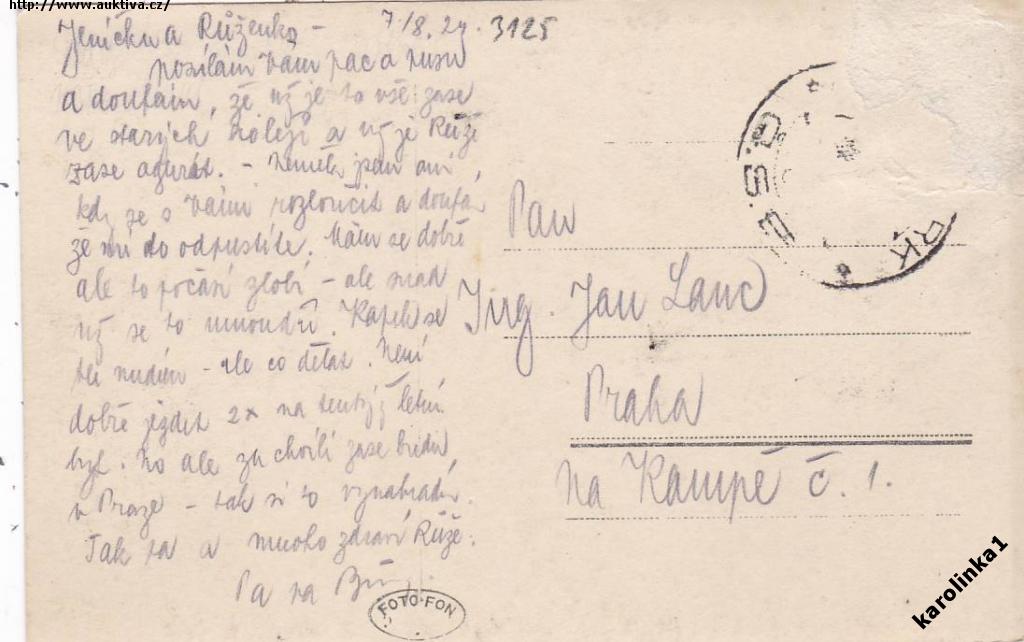 http://www.auktiva.cz/
Jeníčku a Růženko – 7/8. 29. 3125
posílám Vám pac a pusu
a doufám, že už je to vše zase
ve starých kolejí a už je Růže
zase agurát. – Neměla jsem ani
kdy se s Vámi rozloučit a doufá
že mi to odpustíte. Mám se dobře
ale to počásí zlobí – ale snad
už se to umoudří. se
nudím – ale co dělat. Není
dobře jezdit 2x na tentýž letní
byt. No ale za chvíli zase budu
v Praze – tak si to vynahradím.
Tak pa a mnoho zdraví Růže.
Pa pa
Pan
Ing. Jan Lanc
Praha
na Kampě č. 1.
FOTO-FON
karolinka1